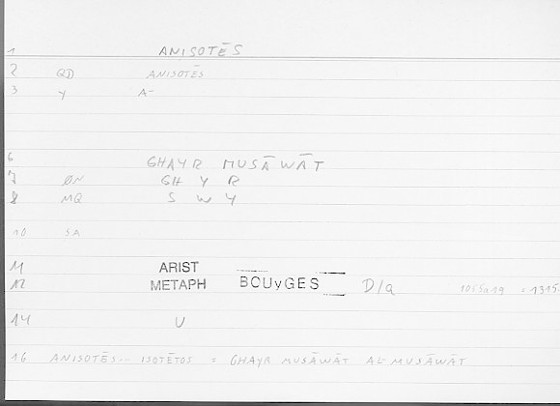 1 ANISOTĒS
2 QD ANISOTĒS
3 Y A-
6 GHAYR MUSĀWĀT
7 ØN GH Y R
8 MQ S W Y
10 SA
11 ARIST
12 METAPH BOUYGES D/a
14 U
16 ANISOTĒS-- ISOTĒTOS = GHAYR MUSĀWĀT AL-MUSĀWĀT